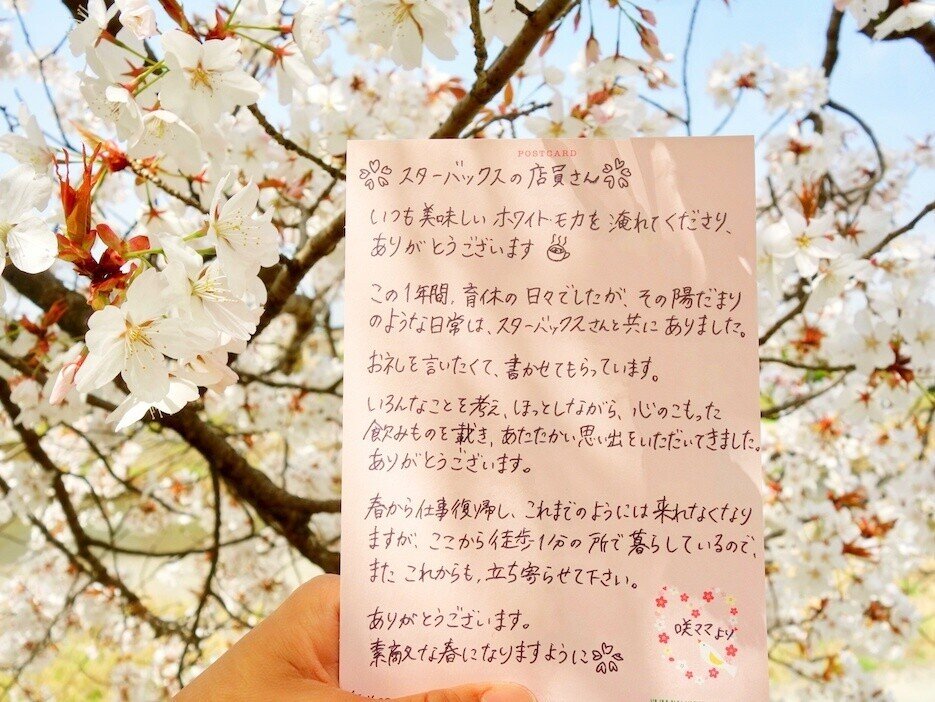 POSTCARD
スターバックスの店員さん
いつも美味しいホワイトモカを淹れてくださり、
ありがとうございます
この1年間、育休の日々でしたが、その陽だまり
のような日常は、スターバックスさんと共にありました。
お礼を言いたくて、書かせてもらっています。
いろんなことを考え、ほっとしながら、心のこもった
飲みものを戴き、あたたかい思い出をいただいてきました。
ありがとうございます。
春から仕事復帰し、これまでのようには来れなくなり
ますが、ここから徒歩1分の所で暮らしているので、
またこれからも、立ち寄らせて下さい。
ありがとうございます。
素敵な春になりますように
咲ママより